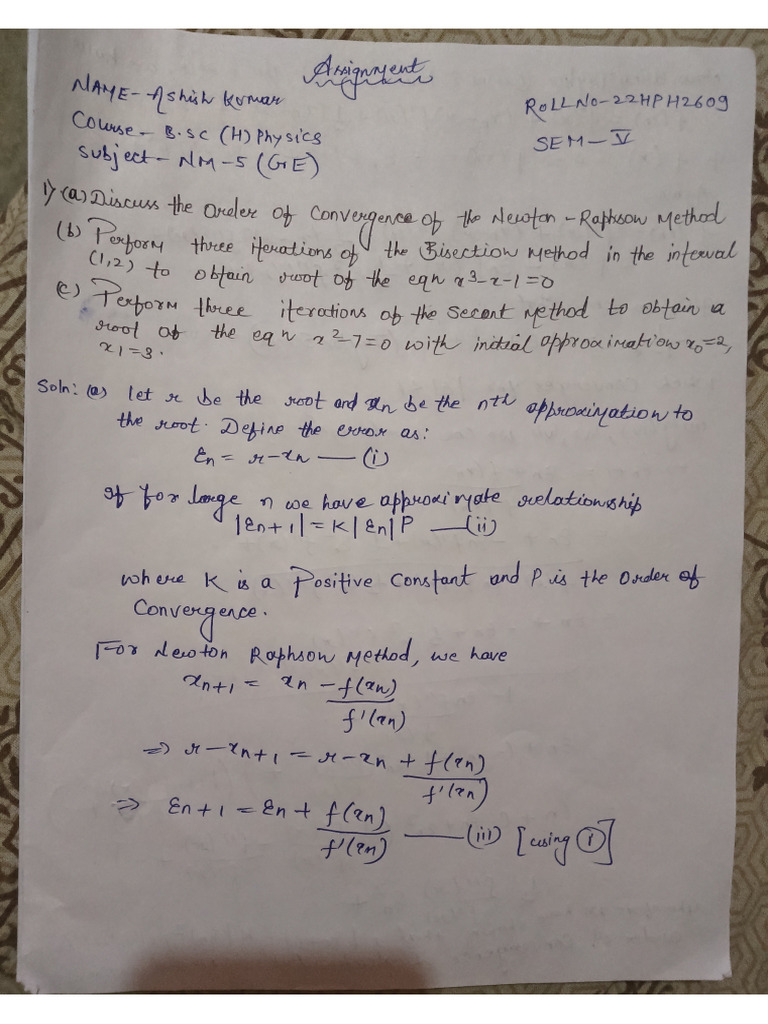 Assignment
NAME- Ashish Kumar
ROLLNo-22HPH2609
Course- B.SC (H) Physics
SEM-V
Subject- NM-5 (GE)
1) (a) Discuss the Order of Convergence of the Newton-Raphson Method
(b) Perform three iterations of the Bisection Method in the interval
(1,2) to obtain root of the eqn x³-x-1=0
(c) Perform three iterations of the Secant Method to obtain a
root of the eqn x²-7=0 with initial approximation x₀=2,
x₁=3.
Soln: (a) let r be the root and xn be the nth approximation to
the root. Define the error as:
Ɛn = r-xn —(i)
If for large n we have approximate relationship
|Ɛn+1| = K|Ɛn|P —(ii)
where K is a Positive Constant and P is the Order of
Convergence.
For Newton Raphson Method, we have
xn+1 = xn - f(xn)
f'(xn)
⇒ r-xn+1 = r-xn + f(xn)
f'(xn)
⇒ Ɛn+1 = Ɛn + f(xn)
f'(xn) —(iii) [using (i)]